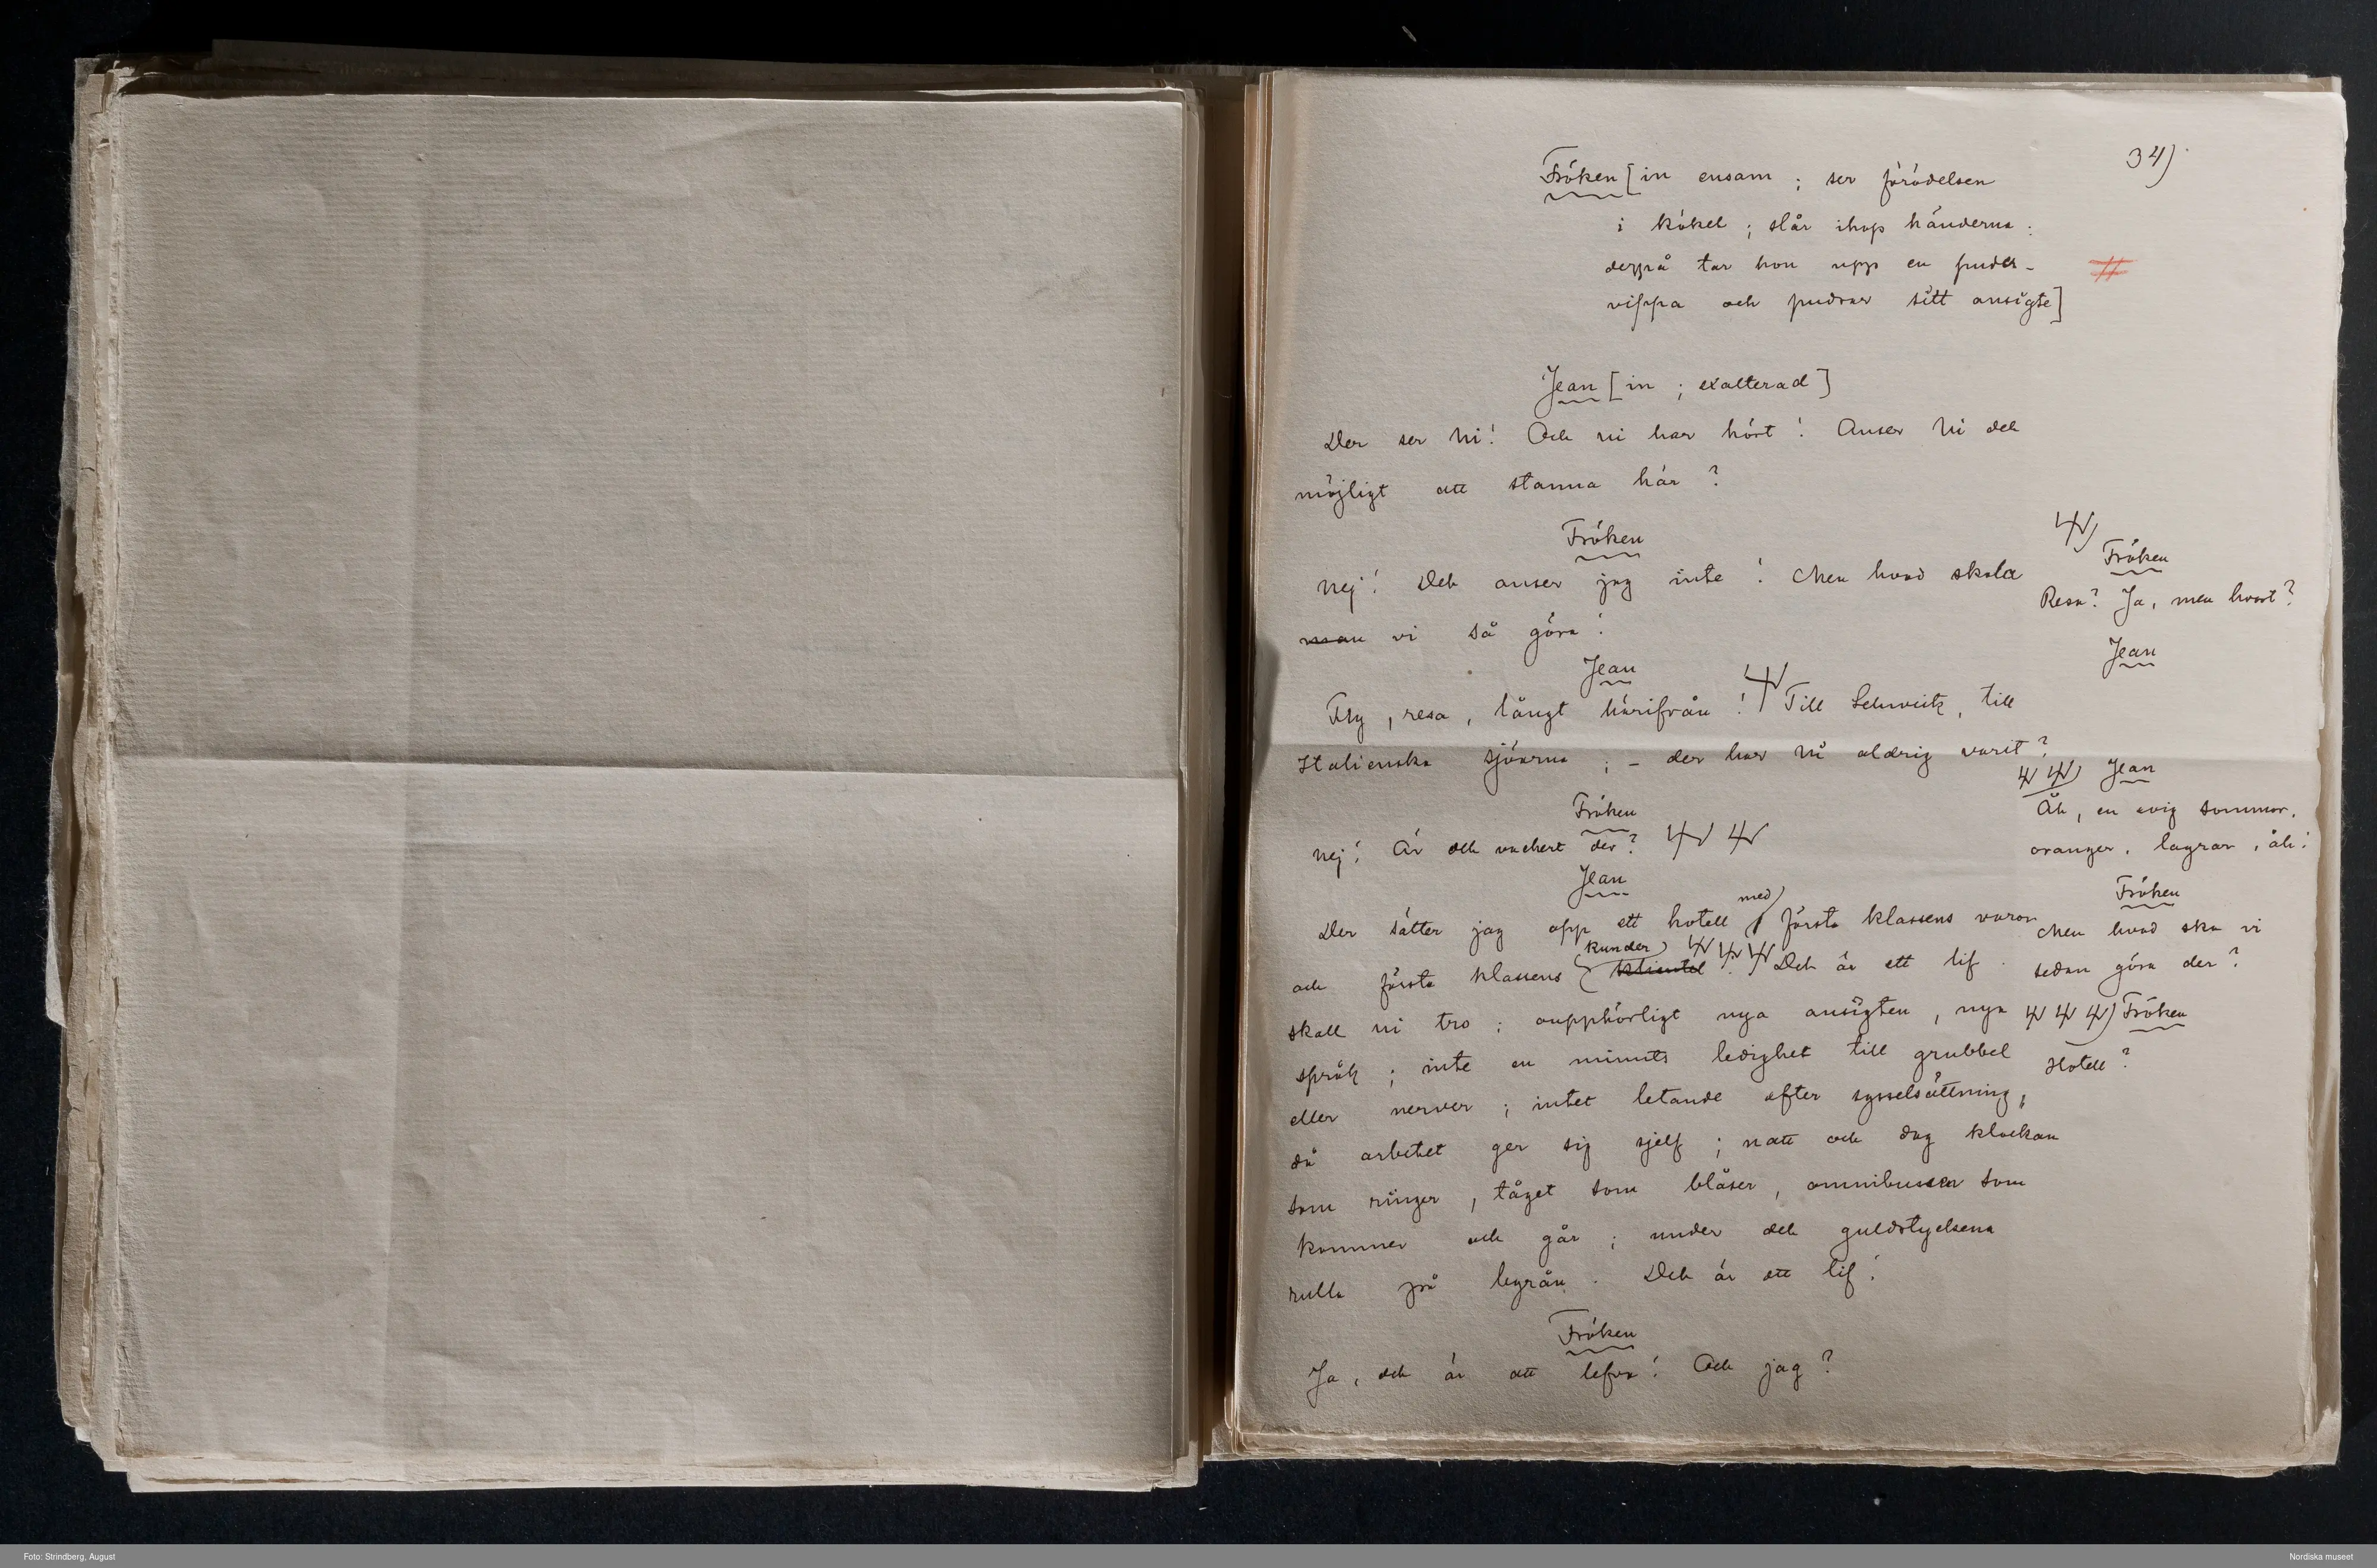 34)
Fröken [in ensam; ser förödelsen
i köket; slår ihop händerna;
derpå tar hon upp en puder-
vippa och pudrar sitt ansigte]
Jean [in; exalterad]
Der ser Ni! Och ni har hört! Anser Ni det
möjligt att stanna här?
Fröken
Nej! Det anser jag inte! Men hvad skola
man vi så göra!
Jean
Fly, resa, långt härifrån! Till Schweitz, till
Italienska sjöarna; – der har Ni aldrig varit?
Fröken
Nej! Är det vackert der?
Jean
Der sätter jag opp ett hotell med) första klassens varor
och första klassens kunder) klientel. Det är ett lif
skall ni tro; oupphörligt nya ansigten, nya
språk; inte en minuts ledighet till grubbel
eller nerver; intet letande efter sysselsättning,
då arbetet ger sig sjelf; natt och dag klockan
som ringer, tåget som blåser, omnibussen som
kommer och går; under det guldstyckena
rulla på byrån. Det är ett lif!
Fröken
Ja, det är att lefva! Och jag?
Fröken
Resa? Ja, men hvart?
Jean
Jean
Åh, en evig sommar,
oranger, lagrar, åh!
Fröken
Men hvad ska vi
sedan göra der?
Fröken
Hotell?
Foto: Strindberg, August
Nordiska museet